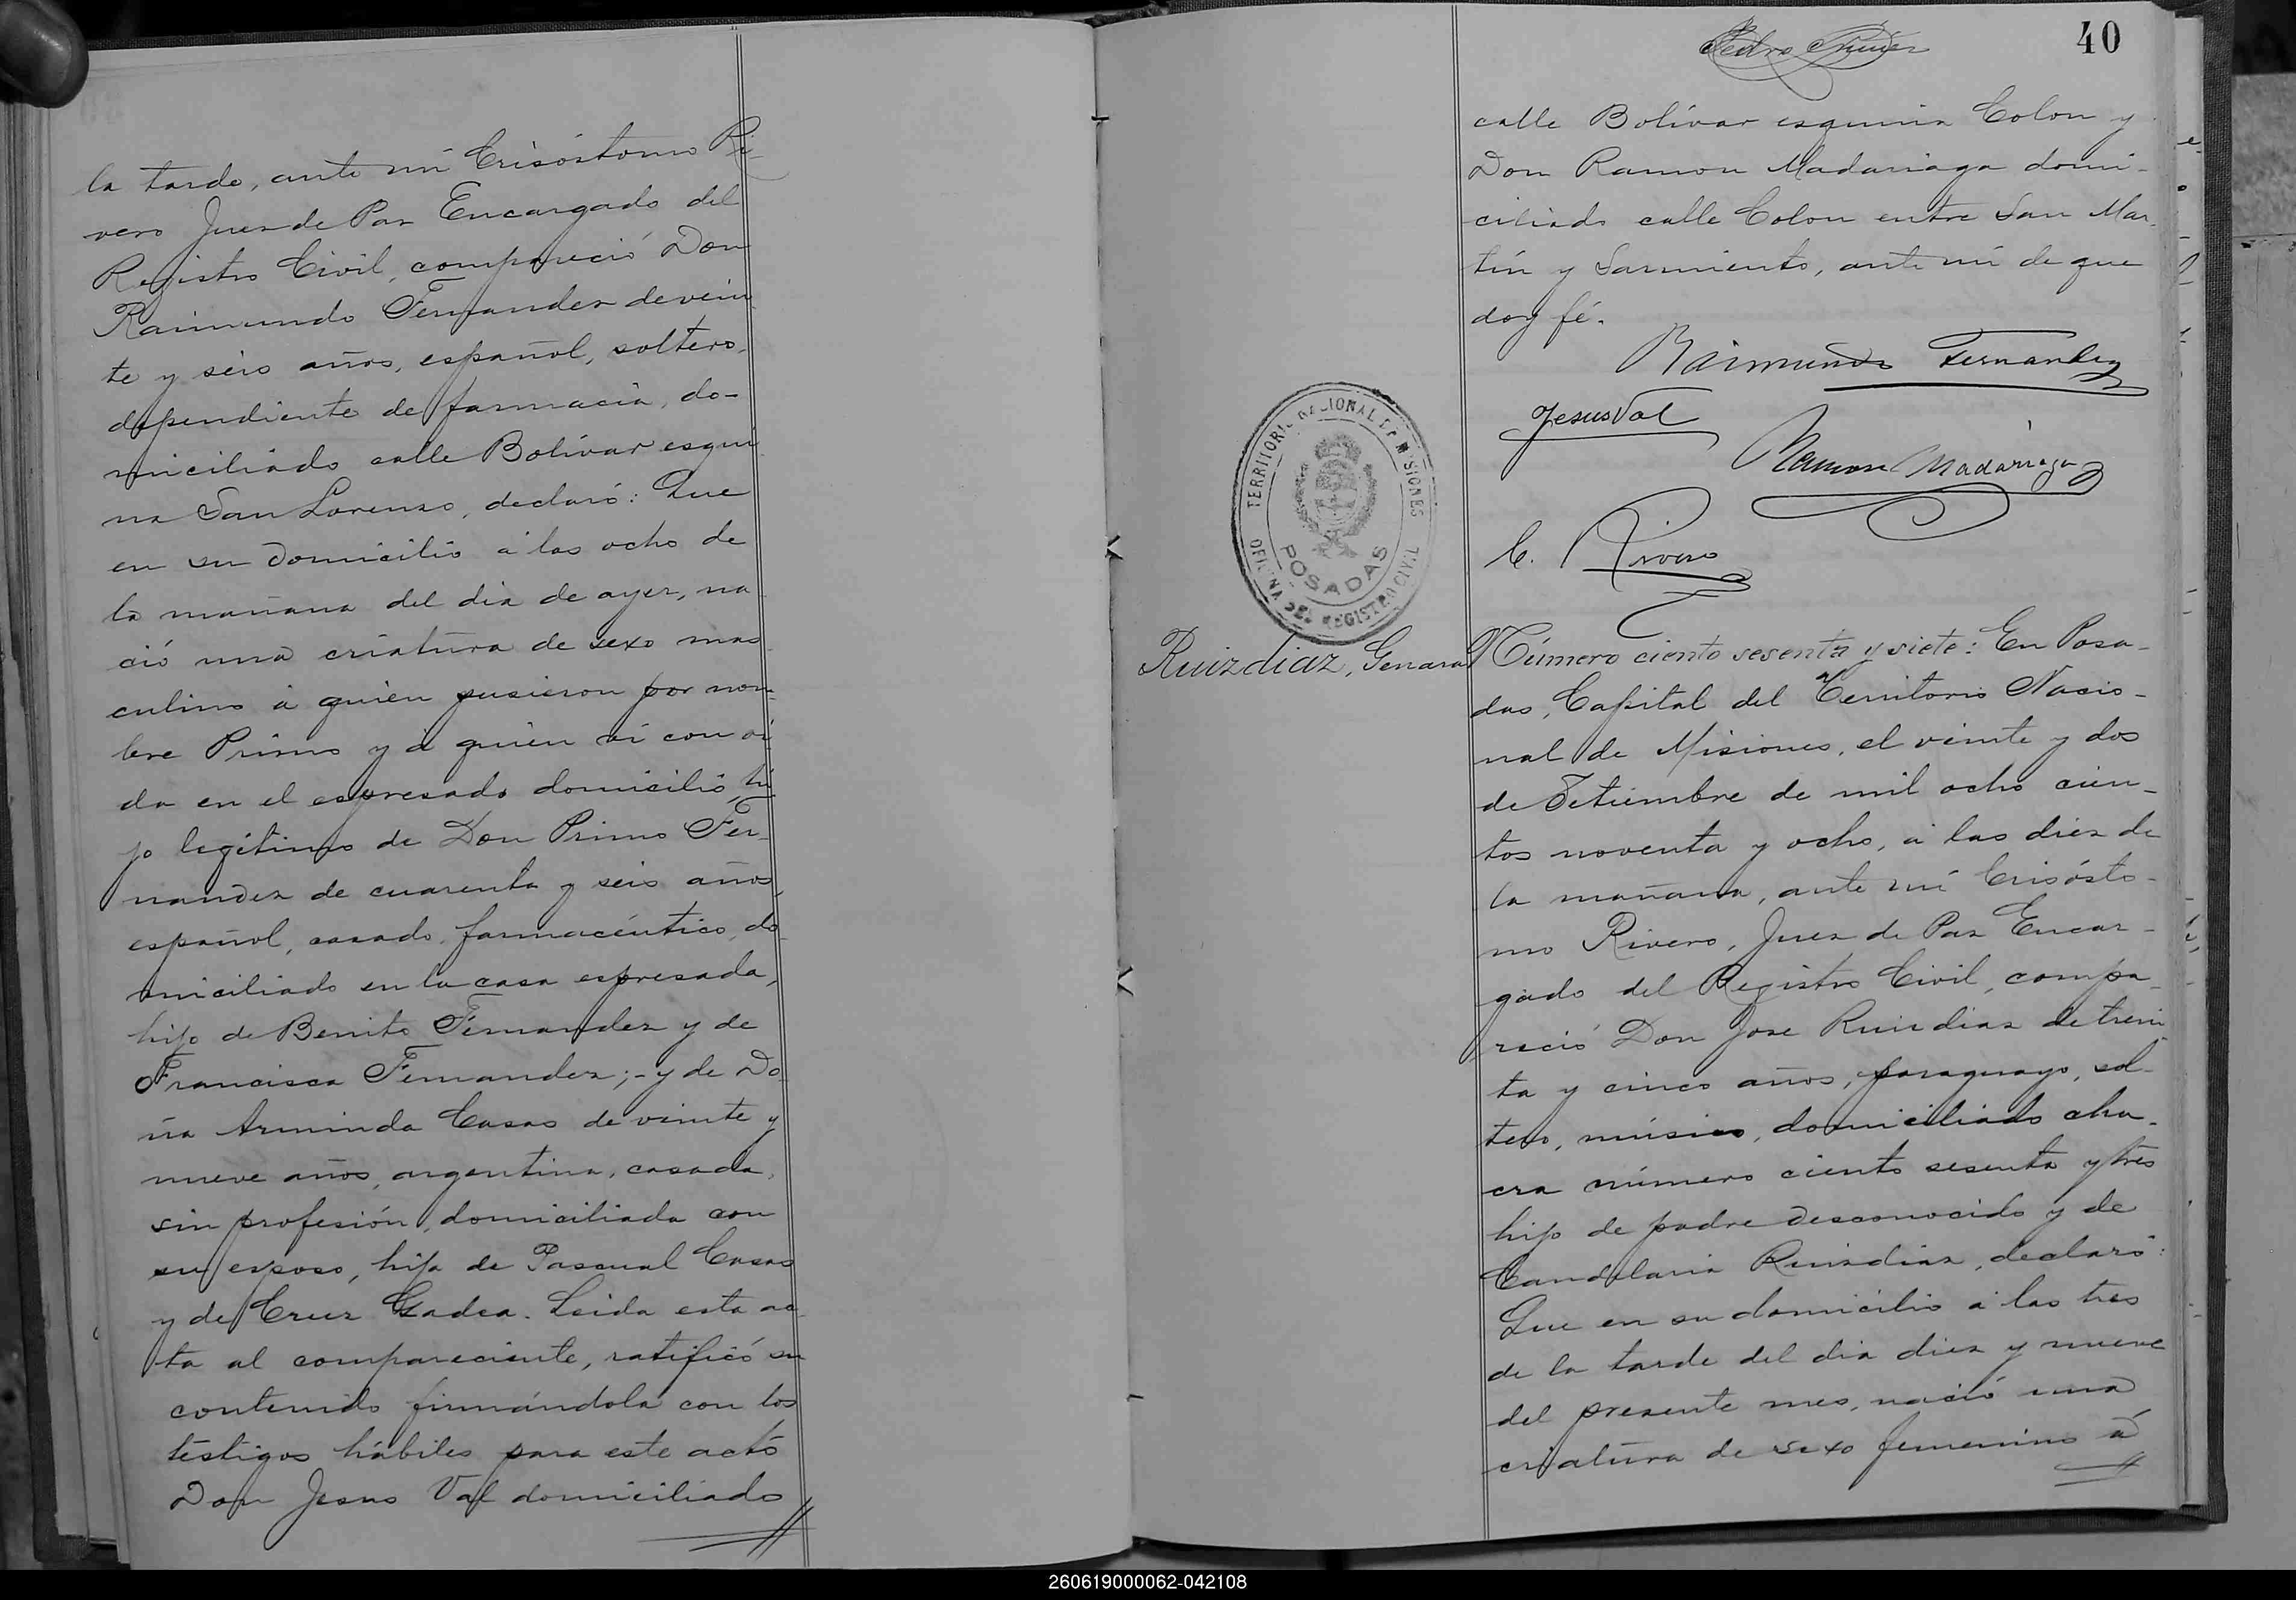 la tarde, ante mí Crisóstomo Ri
vero Juez de Paz Encargado del
Registro Civil, compareció Don
Raimundo Fernandez de vein
te y seis años, español, soltero,
dependiente de farmacia, do-
miciliado calle Bolívar esqui
na San Lorenzo, declaró: Que
en su domicilio á las ocho de
la mañana del dia de ayer, na
ció una criatura de sexo mas
culino á quien pusieron por nom
bre Primo y á quien vi con vi
da en el espresado domicilio, hi
jo legítimo de Don Primo Fer-
nandez de cuarenta y seis años,
español, casado, farmacéutico, do
miciliado en la casa espresada,
hijo de Benito Fernandez y de
Francisca Fernandez;- y de Do
ña Arminda Casas de veinte y
nueve años, argentina, casada,
sin profesión, domiciliada con
su esposo, hija de Pascual Casas
y de Cruz Gadea. Leida esta ac
ta al compareciente, ratificó su
contenido firmándola con los
testigos hábiles para este acto
Don Jesus Val domiciliado
40
calle Bolívar esquina Colon y
Don Ramon Madariaga domi-
ciliado calle Colon entre San Mar
tín y Sarmiento, ante mí de que
doy fé.
Raimundo Fernandez
Jesus Val
Ramon Madariaga
C. Rivero
TERRITORIO NACIONAL DE MISIONES
POSADAS
OFICINA DEL REGISTRO CIVIL
Ruizdiaz, Genara
Número ciento sesenta y siete: En Posa-
das, Capital del Territorio Nacio-
nal de Misiones, el veinte y dos
de Setiembre de mil ocho cien-
tos noventa y ocho, á las diez de
la mañana, ante mí Crisósto-
mo Rivero, Juez de Paz Encar-
gado del Registro Civil, compa-
reció Don Jose Ruizdiaz de trein
ta y cinco años, paraguayo, sol-
tero, músico, domiciliado cha-
cra número ciento sesenta y tres
hijo de padre desconocido y de
Candelaria Ruizdiaz, declaró:
Que en su domicilio á las tres
de la tarde del dia diez y nueve
del presente mes, nació una
criatura de sexo femenino á
260619000062-042108